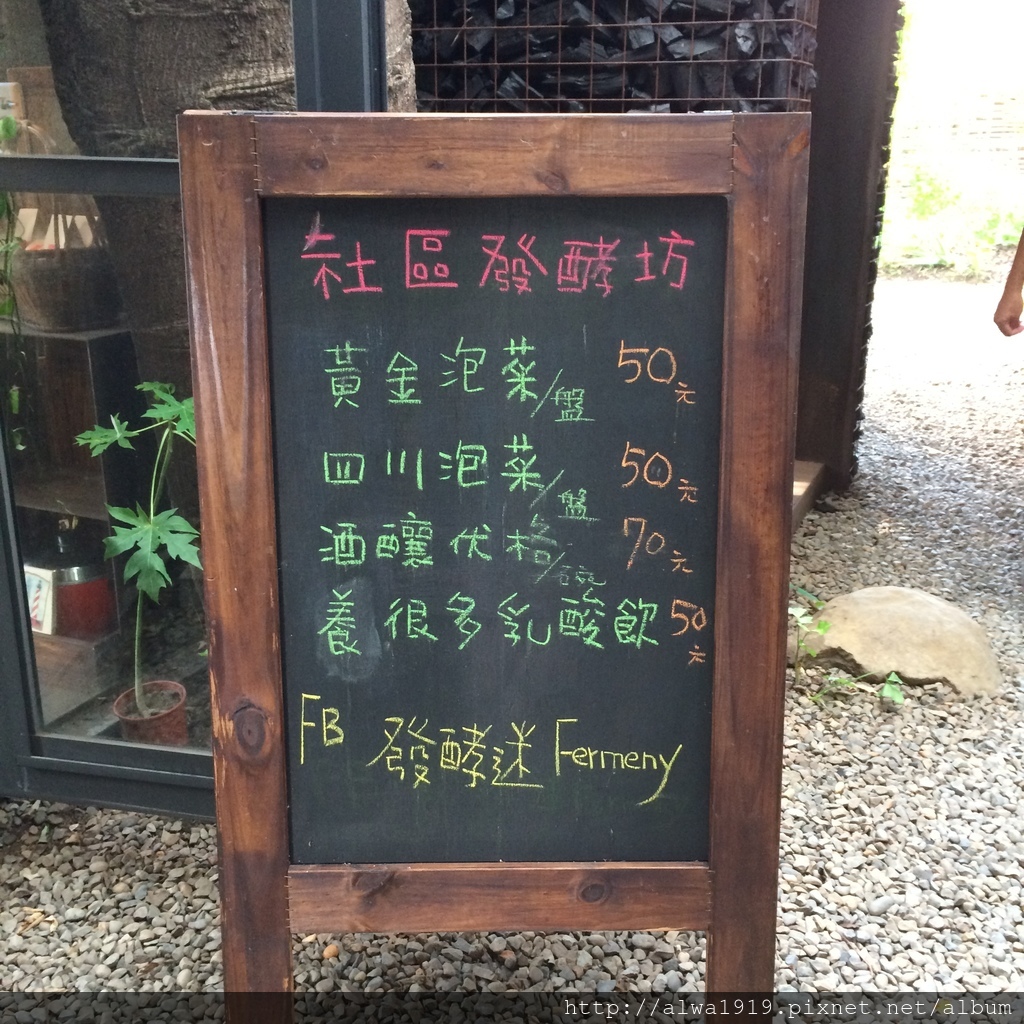 社區發酵坊
黃金泡菜/盤 50元
四川泡菜/盤 50元
酒釀優格/碗 70元
養很多乳酸飲 50元
FB 發酵迷 Fermeny
http://alwa1919.pixnet.net/album